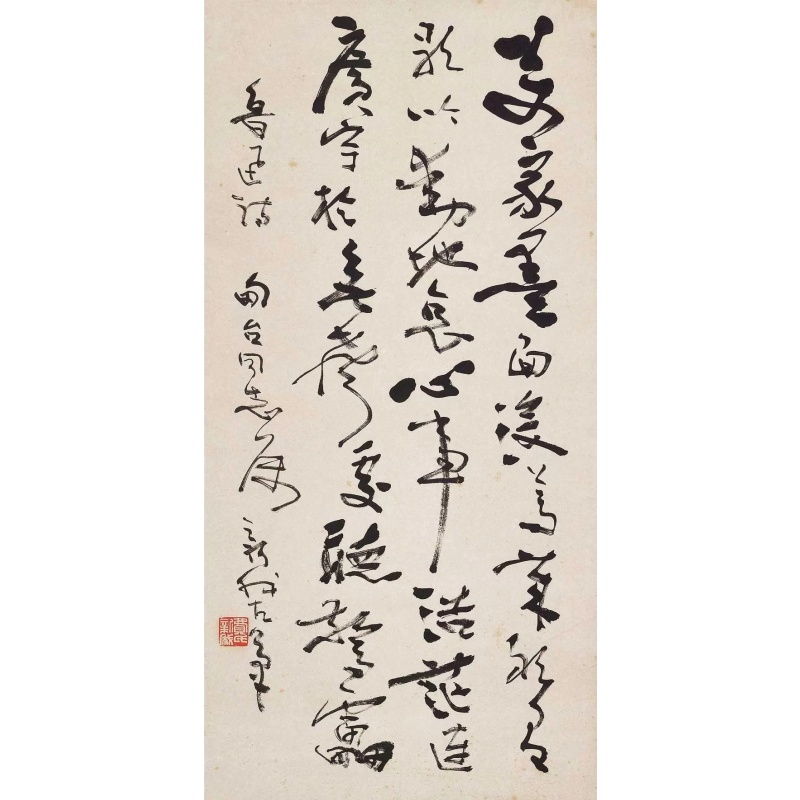 萬家墨面沒蒿萊敢有
歌吟動地哀心事浩茫連
廣宇於無聲處聽驚雷
魯迅詩 台同志屬 新我左筆
費新我